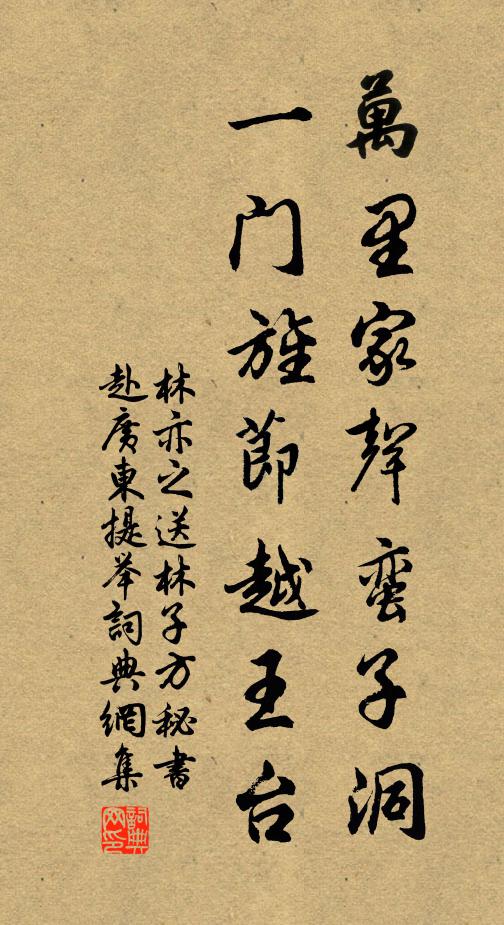 萬里家聲蛮子洞
一门旌節越王台
林亦之送林子方秘書
赴廣東提举詞典網集
詞典
网印